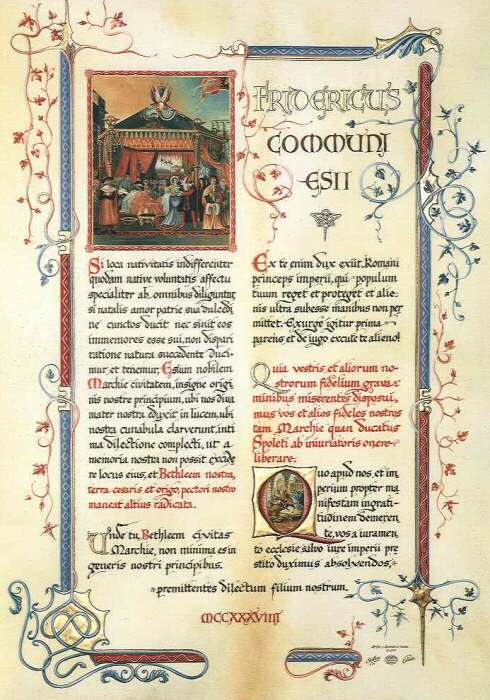 FRIDERICUS
COMMUNI
ESII
Si loca nativitatis indifferenter
quodam native voluntatis affectu
specialiter ab omnibus diliguntur
si natalis amor patrie sua dulcedi
ne cunctos ducit nec sinit eos
immemores esse sui, non dispari
ratione natura succedente duci-
mur et tenemur, Esium nobilem
Marchie civitatem, insigne origi
nis nostre principium, ubi nos diva
mater nostra eduxit in lucem, ubi
nostra cunabula claruerunt, inti
ma dilectione complecti, ut a
memoria nostra non possit excide
re locus eius, et Bethleem nostra,
terra cesaris et origo, pectori nostro
maneat altius radicata.
Unde tu, Bethleem civitas
Marchie, non minima es in
generis nostri principibus.
Ex te enim dux exiit, Romani
princeps imperii, qui populum
tuum reget et proteget et alie-
nis ultra subesse manibus non per
mittet. Exurge igitur prima
parens et de iugo excute te alieno!
Quia vestris et aliorum no-
strorum fidelium grava-
minibus miserentes disposui,
mus vos et alios fideles nostros
tam Marchie quan ducatus
Spoleti ab iniuriatoris onere
liberare.
Quo apud nos, et im,
perium propter ma
nifestam ingrati-
tudinem demeren
te, vos a iuramen,
to ecclesie salvo iure imperii pre
stito duximus absolvendos,
premittentes dilectum filium nostrum.
MCCXXXVIIII